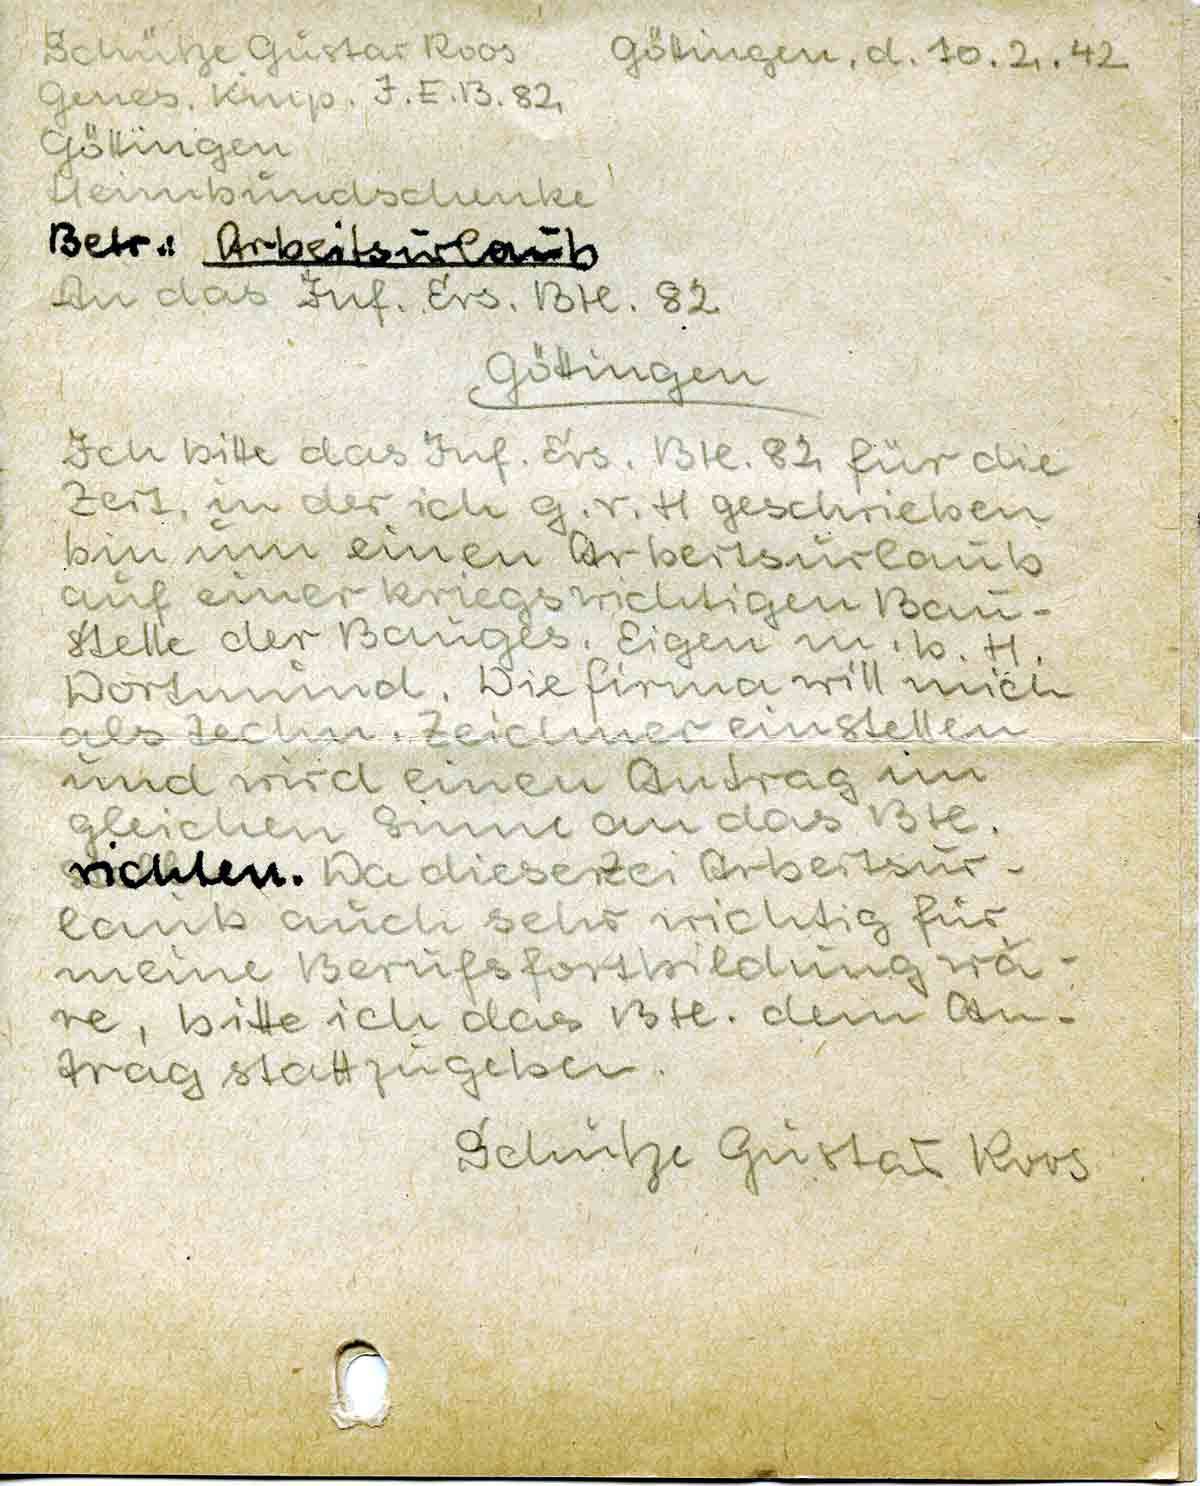 Schütze Gustav Koos Göttingen, d. 10.2.42
Genes. Komp. I.E.B. 82
Göttingen
Heimbundschenke
Betr.: Arbeitsurlaub
An das Inf. Ers. Btl. 82
Göttingen
Ich bitte das Inf. Ers. Btl. 82 für die
Zeit, in der ich g.v.H geschrieben
bin um einen Arbeitsurlaub
auf einer kriegswichtigen Bau-
stelle der Bauges. Eigen m.b.H.
Dortmund. Die Firma will mich
als techn. Zeichner einstellen
und wird einen Antrag im
gleichen Sinne an das Btl.
richten. Da Arbeitsur-
laub auch sehr wichtig für
meine Berufsfortbildung wä-
re, bitte ich das Btl. dem An-
trag stattzugeben.
Schütze Gustav Koos